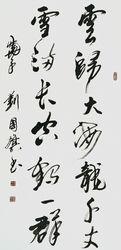 雲歸大海龍千丈
雪滿長空鶴一群
劉國 書